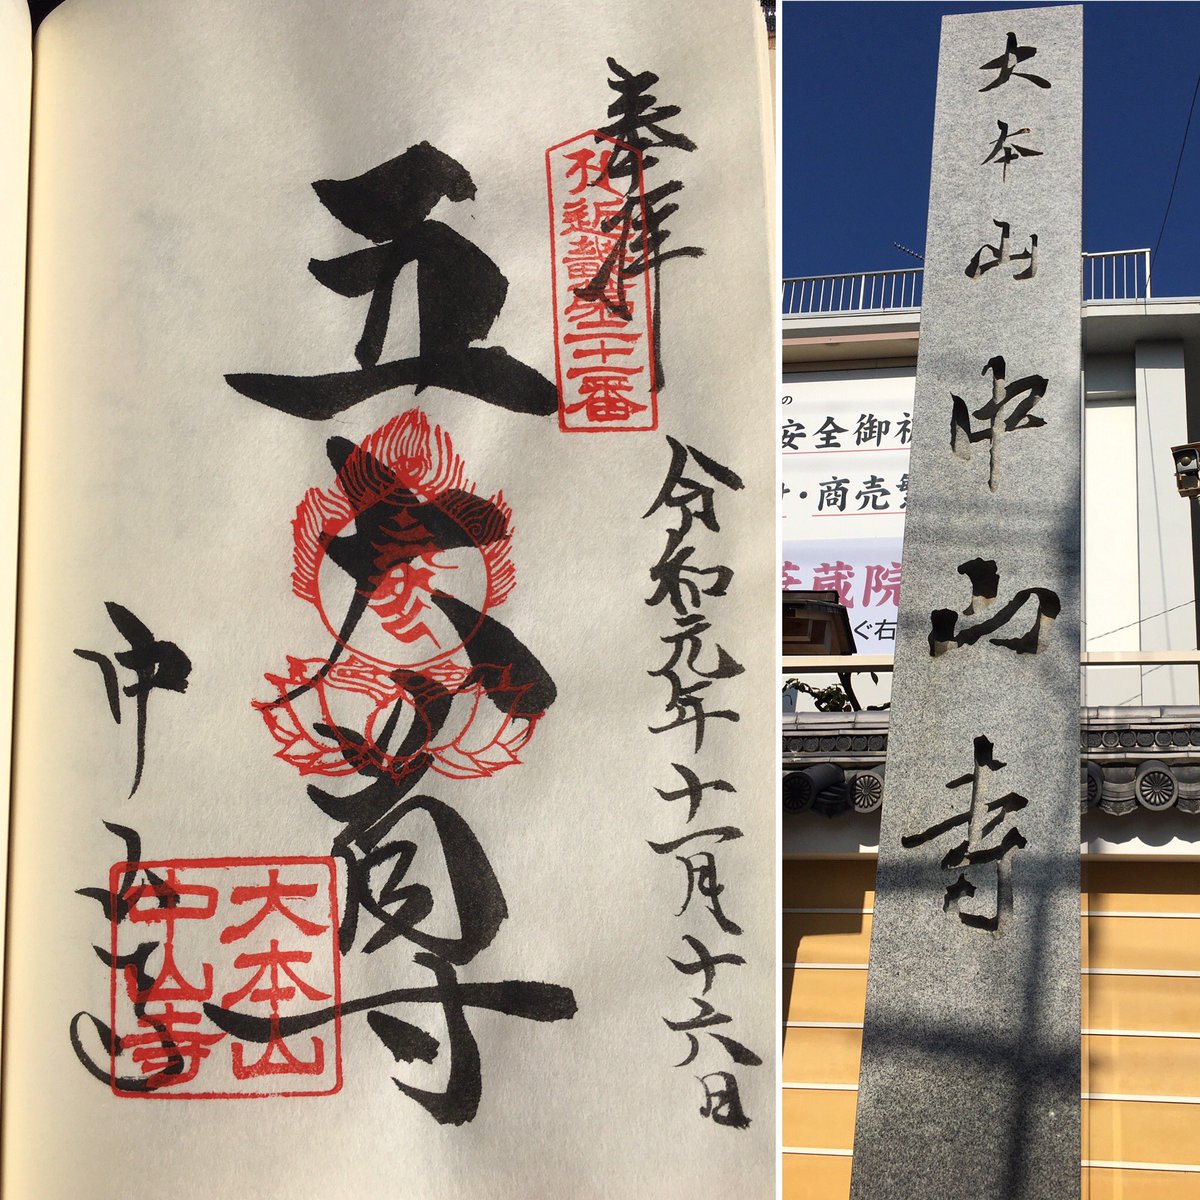 奉拝
近畿第二十一番
令和元年十一月十六日
五大尊
中山寺
大本山
中山寺
大本山中山寺
の
安全御祈
・商売繁
蔵院
ぐ右